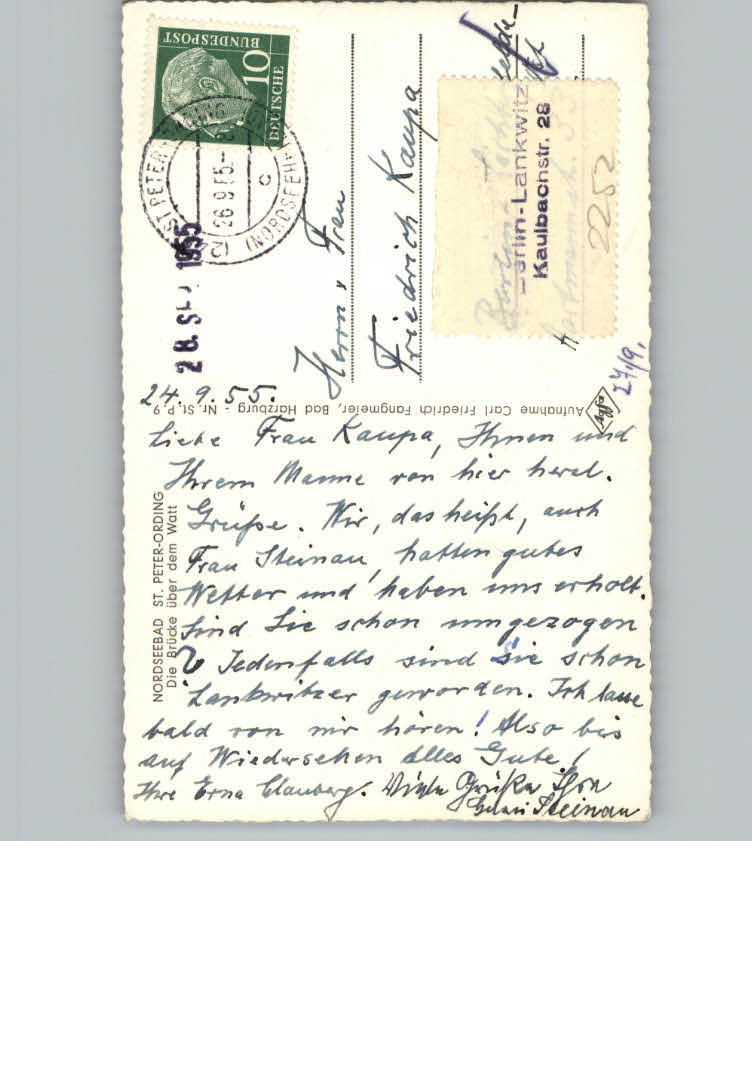 DEUTSCHE
BUNDESPOST
10
ST. PETER
26.9.55
c
(NORDSEE
28. SEP. 1955
Herrn u. Frau
Friedrich Kaupa
Berlin
Berlin-Lankwitz
Kaulbachstr. 28
2252
27./9.
Aufnahme Carl Friedrich Fangmeier, Bad Harzburg - Nr. St. P. 9
Agfa
NORDSEEBAD ST. PETER-ORDING
Die Brücke über dem Watt
24. 9. 55.
Liebe Frau Kaupa, Ihnen und
Ihrem Manne von hier herzl.
Grüße. Wir, das heißt, auch
Frau Steinau, hatten gutes
Wetter und haben uns erholt.
Sind Sie schon umgezogen
? Jedenfalls sind Sie schon
Lankwitzer geworden. Ich lasse
bald von mir hören! Also bis
auf Wiedersehen alles Gute!
Ihre Erna Clauberg. Viele Grüße Ihre
Steinau